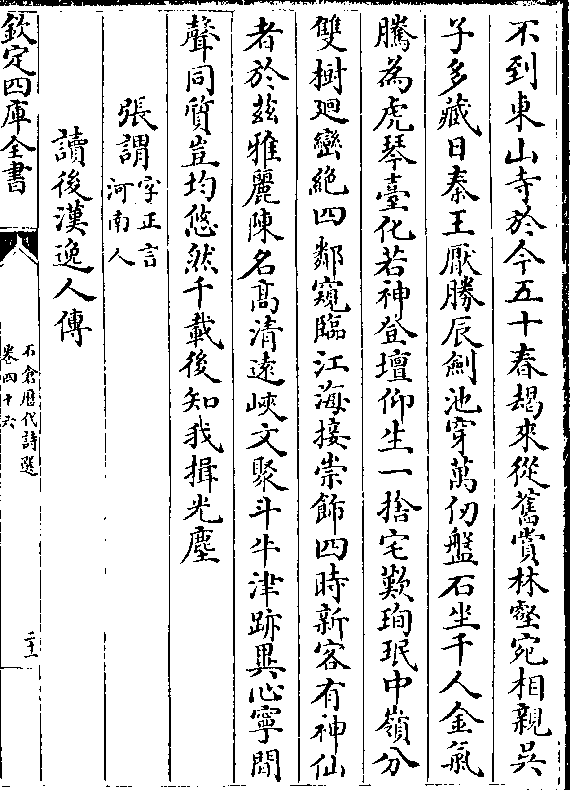 不到東山寺於今五十春朅來從舊賞林壑宛相親吳
子多藏日秦王厭勝辰劍池穿萬仞盤石坐千人金氣
騰為虎琴臺化若神登壇仰生一捨宅歎珣珉中嶺分
雙樹廻巒絶四鄰窺臨江海接崇飾四時新客有神仙
者於兹雅麗陳名髙清遠峽文聚斗牛津跡異心寧間
聲同質豈均悠然千載後知我揖光塵
張謂字正言河南人
讀後漢逸人傳
欽定四庫全書
石倉歴代詩選
卷四十六
二十一